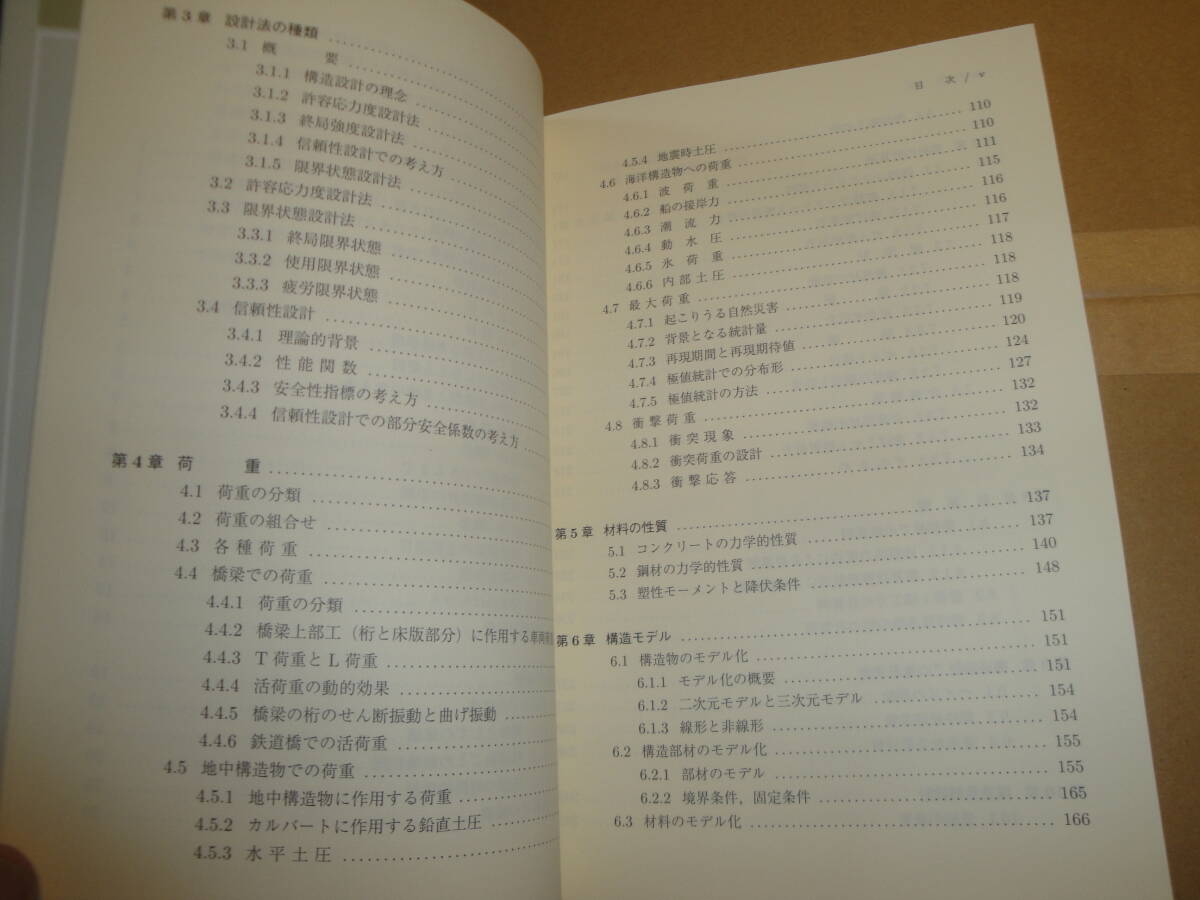 第3章 設計法の種類
3.1 概 要
3.1.1 構造設計の理念
3.1.2 許容応力度設計法
3.1.3 終局強度設計法
3.1.4 信頼性設計での考え方
3.1.5 限界状態設計法
3.2 許容応力度設計法
3.3 限界状態設計法
3.3.1 終局限界状態
3.3.2 使用限界状態
3.3.3 疲労限界状態
3.4 信頼性設計
3.4.1 理論的背景
3.4.2 性能関数
3.4.3 安全性指標の考え方
3.4.4 信頼性設計での部分安全係数の考え方
第4章 荷 重
4.1 荷重の分類
4.2 荷重の組合せ
4.3 各種荷重
4.4 橋梁での荷重
4.4.1 荷重の分類
4.4.2 橋梁上部工（桁と床版部分）に作用する車両
4.4.3 T荷重とL荷重
4.4.4 活荷重の動的効果
4.4.5 橋梁の桁のせん断振動と曲げ振動
4.4.6 鉄道橋での活荷重
4.5 地中構造物での荷重
4.5.1 地中構造物に作用する荷重
4.5.2 カルバートに作用する鉛直土圧
4.5.3 水平土圧
目 次 / v
4.5.4 地震時土圧 110
4.6 海洋構造物への荷重 110
4.6.1 波荷重 111
4.6.2 船の接岸力 115
4.6.3 潮流力 116
4.6.4 動水圧 116
4.6.5 氷荷重 117
4.6.6 内部土圧 118
4.7 最大荷重 118
4.7.1 起こりうる自然災害 118
4.7.2 背景となる統計量 119
4.7.3 再現期間と再現期待値 120
4.7.4 極値統計での分布形 124
4.7.5 極値統計の方法 127
4.8 衝撃荷重 132
4.8.1 衝突現象 132
4.8.2 衝突荷重の設計 133
4.8.3 衝撃応答 134
第5章 材料の性質 137
5.1 コンクリートの力学的性質 137
5.2 鋼材の力学的性質 140
5.3 塑性モーメントと降伏条件 148
第6章 構造モデル 151
6.1 構造物のモデル化 151
6.1.1 モデル化の概要 151
6.1.2 二次元モデルと三次元モデル 154
6.1.3 線形と非線形 154
6.2 構造部材のモデル化 155
6.2.1 部材のモデル 155
6.2.2 境界条件，固定条件 165
6.3 材料のモデル化 166